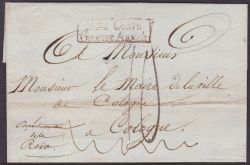 GRANDE ARMÉE
A Monsieur
Monsieur le Maire de la ville
de Cologne
a Cologne
Département
de la
Roer